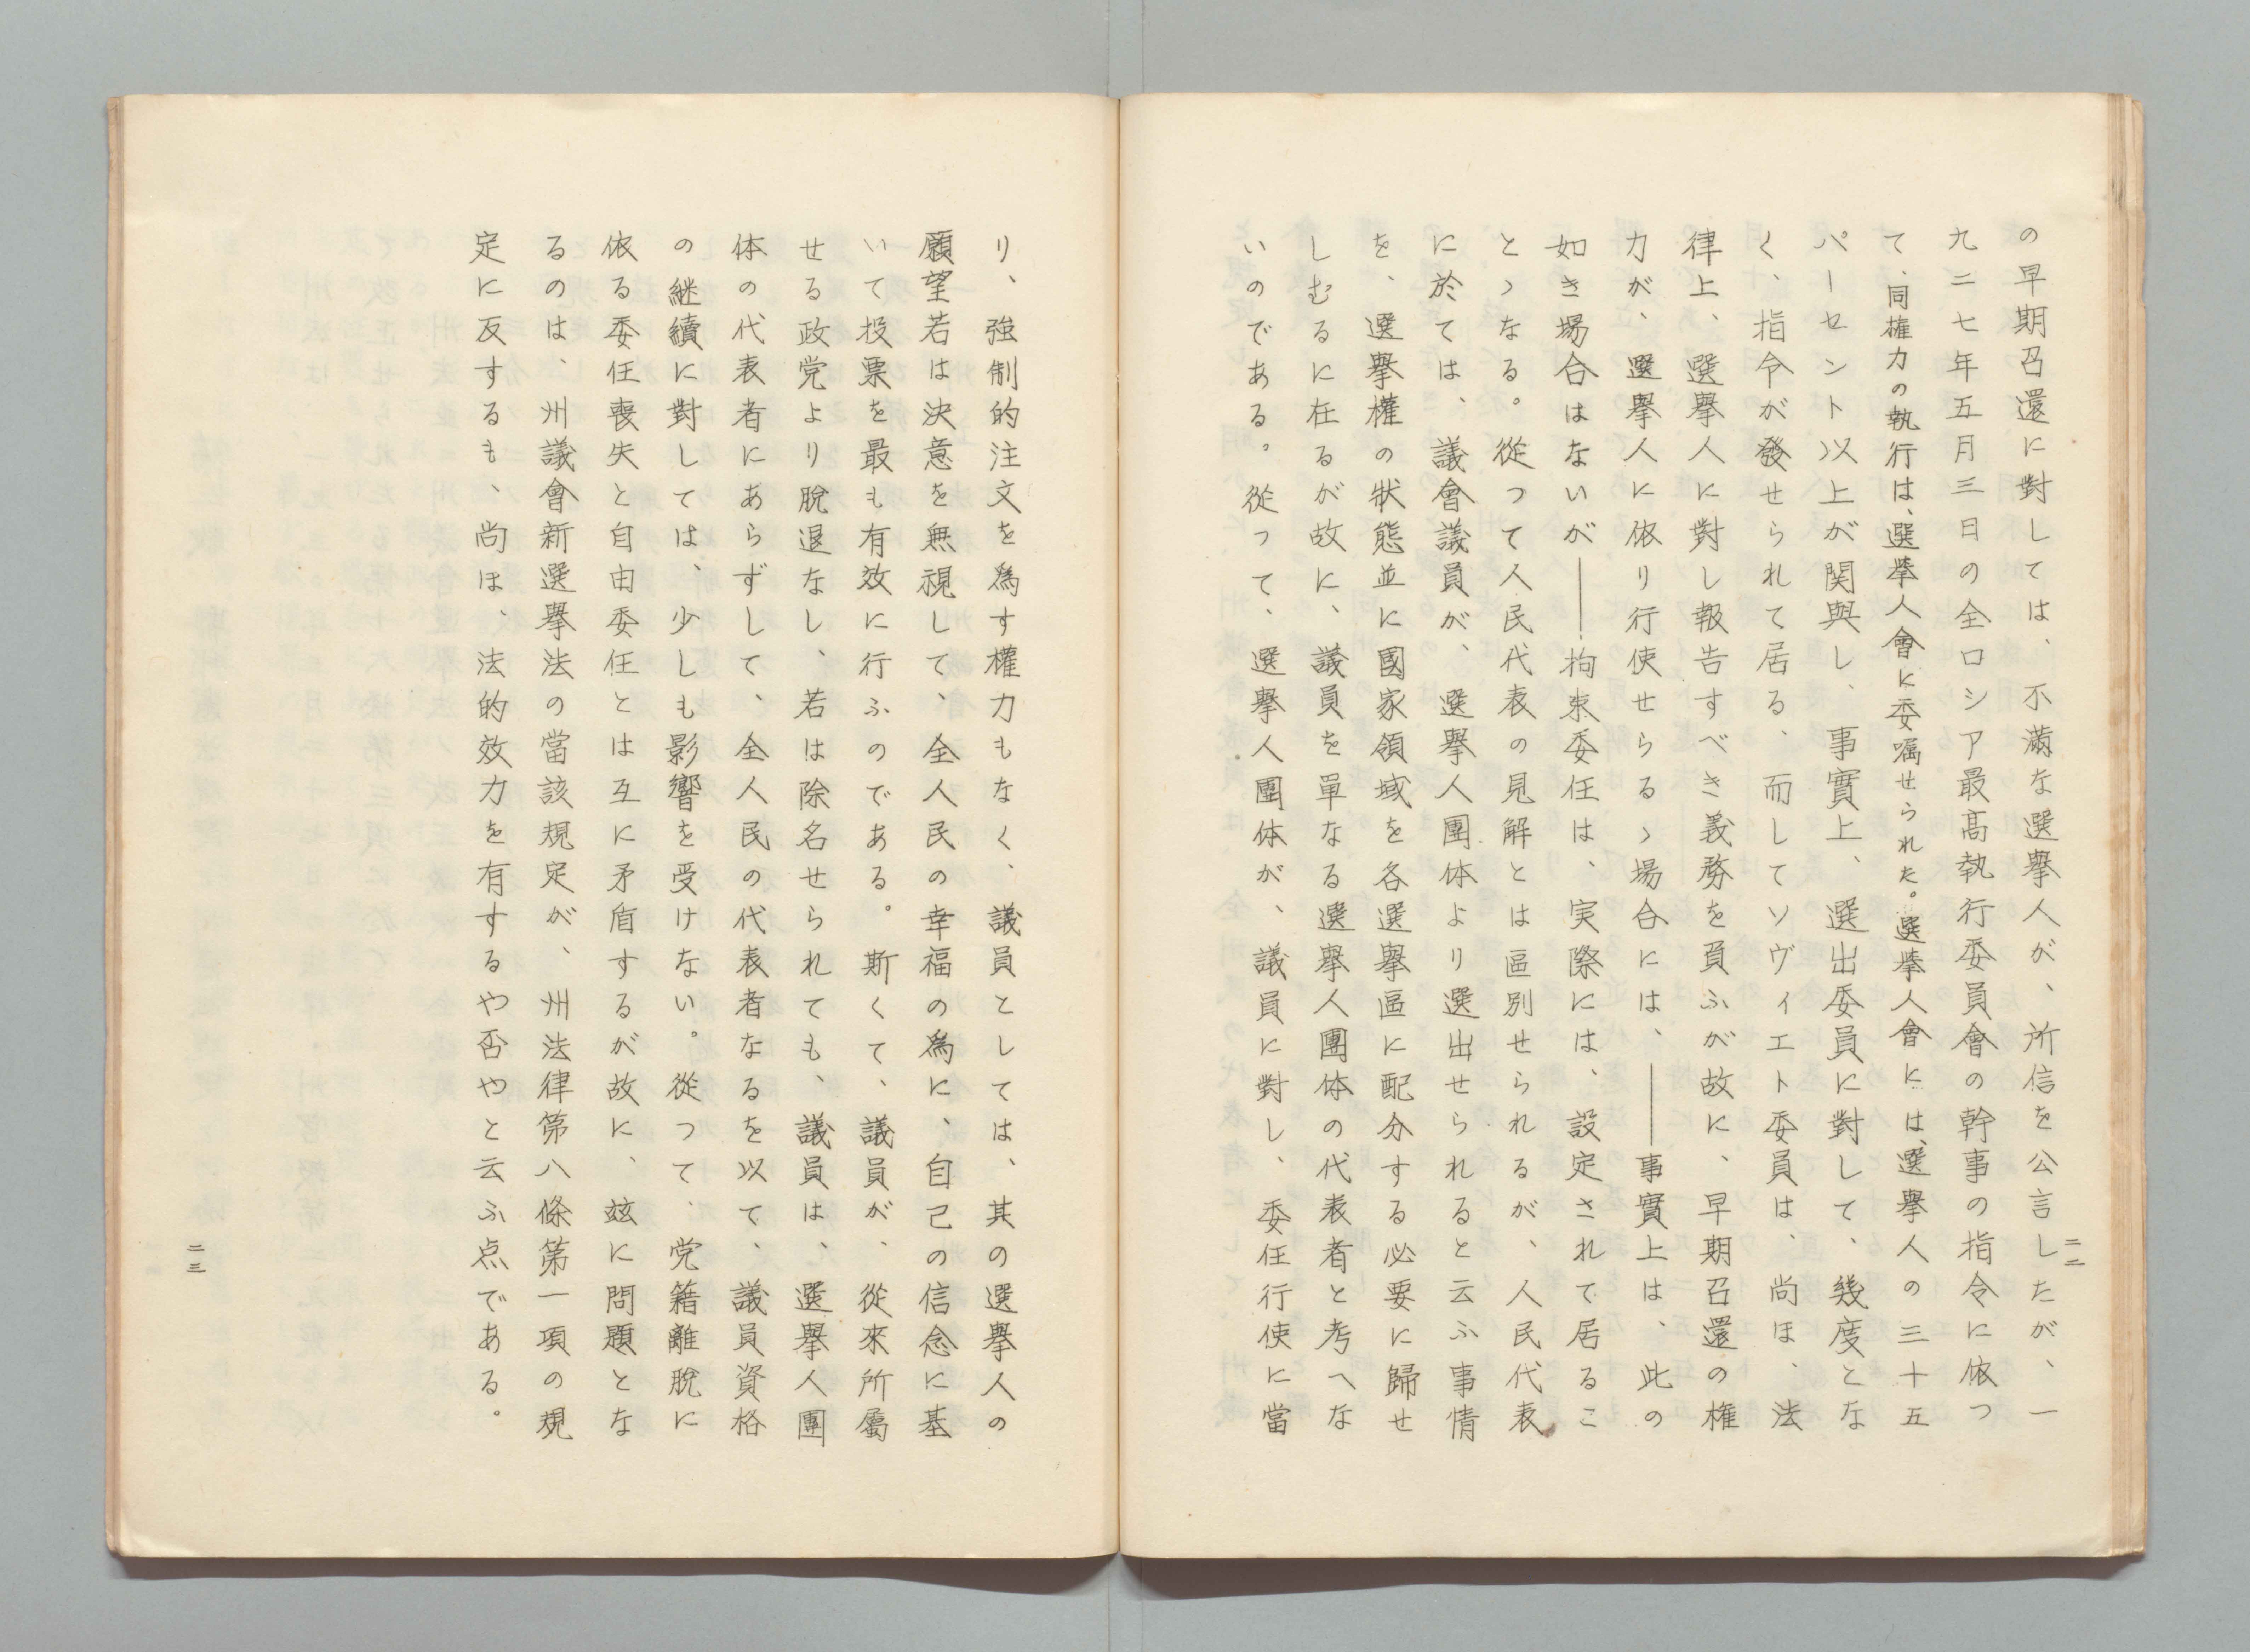 の早期召還に對しては、不滿な選擧人が、所信を公言したが、一
九二七年五月三日の全ロシア最高執行委員會の幹事の指令に依つ
て、同権力の執行は、選挙人會に委嘱せられた。選挙人會には、選擧人の三十五
パーセント以上が関與し、事實上、選出委員に對して、幾度とな
く、指令が發せられて居る、而してソヴィエト委員は、尚ほ、法
律上、選擧人に對し報告すべき義務を負ふが故に、早期召還の権
力が、選擧人に依り行使せらるゝ場合には、――事實上は、此の
如き場合はないが――拘束委任は、実際には、設定されて居るこ
とゝなる。從つて人民代表の見解とは區別せられるが、人民代表
に於ては、議會議員が、選擧人團体より選出せられると云ふ事情
を、選擧權の狀態並に國家領域を各選擧區に配分する必要に歸せ
しむるに在るが故に、議員を單なる選擧人團体の代表者と考へな
いのである。從つて、選擧人團体が、議員に對し、委任行使に當
二二
り、強制的注文を為す權力もなく、議員としては、其の選擧人の
願望若は決意を無視して、全人民の幸福の為に、自己の信念に基
いて投票を最も有效に行ふのである。斯くて、議員が、從來所屬
せる政党より脫退なし、若は除名せられても、議員は、選擧人團
体の代表者にあらずして、全人民の代表者なるを以て、議員資格
の継續に對しては、少しも影響を受けない。從つて、党籍離脫に
依る委任喪失と自由委任とは互に矛盾するが故に、玆に問題とな
るのは、州議會新選擧法の當該規定が、州法律第八條第一項の規
定に反するも、尚ほ、法的效力を有するや否やと云ふ点である。
二三